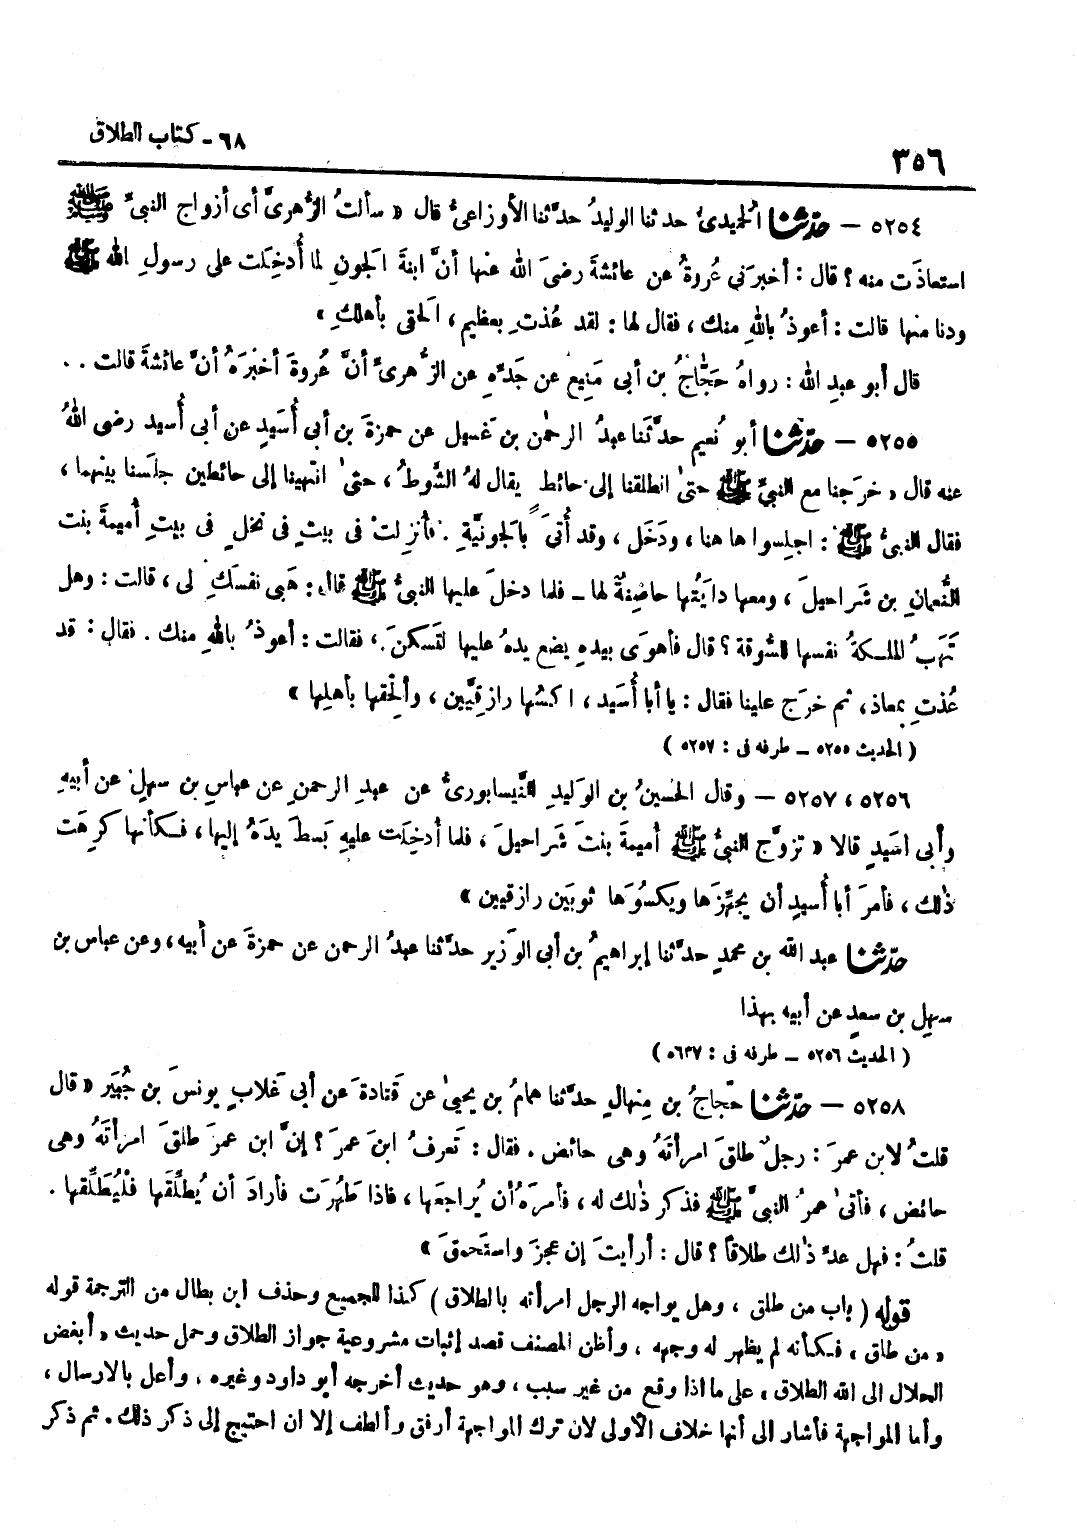 ٣٥٦
٦٨ - كتاب الطلاق
٥٢٥٤ – حدّثنا الحميدىُّ حدثنا الوليدُ حدَّثنا الأوزاعىُّ قال « سألتُ الزُّهرىَّ أى أزواج النبىِّ ﷺ
استعاذَت منه ؟ قال : أخبرَنى عُروةُ عن عائشةَ رضىَ الله عنها أنَّ ابنةَ الجونِ لما أُدخِلَت على رسولِ الله ﷺ
ودنا منها قالت : أعوذُ باللهِ منك ، فقال لها : لقد عُذتِ بعظيم ، الحقى بأهلكِ »
قال أبو عبدِ الله : رواهُ حَجّاجُ بن أبى مَنِيع عن جَدِّه عن الزُّهرىِّ أنَّ عُروةَ أخبَرَهُ أنَّ عائشةَ قالت . .
٥٢٥٥ – حدّثنا أبو نُعيم حدَّثَنا عبدُ الرحمٰن بن غَسيل عن حمزةَ بن أبى أُسَيدٍ عن أبى أُسيد رضى اللهُ
عنه قال « خرَجنا مع النبىِّ ﷺ حتىٰ انطلقنا إلى حائط يقال لهُ الشَّوطُ ، حتىٰ انتهينا إلى حائطين جلَسنا بينهما ،
فقال النبىُّ ﷺ : اجلِسوا ها هنا ، ودَخَل ، وقد أُتىَ بالجونيَّةِ . فأُنزِلَتْ فى بيتٍ فى نخلٍ فى بيتِ أُميمةَ بنت
النُّعمانِ بن شَراحيلَ ، ومعها دايَتُها حاضِنةٌ لها – فلما دخلَ عليها النبىُّ ﷺ قال : هَبى نفسَكِ لى ، قالت : وهل
تَهَبُ الملـكةُ نفسها للسُّوقة ؟ قال فأهوَى بيدهِ يضع يدهُ عليها لتَسكنَ ، فقالت : أعوذُ باللهِ منك . فقال : قد
عُذتِ بمعاذ ، ثم خرَج علينا فقال : يا أبا أُسَيد ، اكسُها رازقِيَّين ، وألحِقها بأهلِها »
( الحديث ٥٢٥٥ – طرفه فى : ٥٢٥٧ )
٥٢٥٦ ، ٥٢٥٧ – وقال الحسينُ بن الوَليدِ النَّيسابورىُّ عن عبدِ الرحمنِ عن عباسِ بن سهلٍ عن أبيهِ
وأبى أسَيدٍ قالا « تزوَّج النبىُّ ﷺ أُميمةَ بنتَ شَراحيلَ ، فلما أُدخِلَت عليهِ بَسطَ يدَهُ إليها ، فـكأنها كرِهَت
ذٰلك ، فأمرَ أبا أُسيدٍ أن يجهِّزَها ويكسُوَها ثوبَين رازقيين »
حدّثنا عبد الله بن محمدٍ حدَّثنا إبراهيمُ بن أبى الوَزير حدَّثنا عبدُ الرحمن عن حمزةَ عن أبيه ، وعن عباس بن
سهلِ بن سعدٍ عن أبيه بهذا
( الحديث ٥٢٥٦ – طرفه فى : ٥٦٣٧ )
٥٢٥٨ – حدّثنا حجّاجُ بن مِنهالٍ حدَّثنا همامُ بن يحيىٰ عن قَتادةَ عن أبى غَلابٍ يونسَ بن جُبَير « قال
قلتُ لابن عمرَ : رجلٌ طلقَ امرأتَهُ وهى حائض . فقال : تَعرفُ ابنَ عمرَ ؟ إنَّ ابن عمرَ طلقَ امرأتَهُ وهى
حائض ، فأتىٰ عمرُ النبىَّ ﷺ فذكر ذٰلك له ، فأمرَهُ أن يُراجعَها ، فاذا طَهُرَت فأرادَ أن يُطلِّقَها فليُطلِّقها .
قلتُ : فهل عدَّ ذٰلك طلاقاً ؟ قال : أرأيتَ إن عجزَ واستَحمقَ »
قوله ( باب من طلق ، وهل يواجه الرجل امرأته بالطلاق ) كذا للجميع وحذف ابن بطال من الترجمة قوله
« من طلق » فـكأنه لم يظهر له وجهه ، وأظن المصنف قصد إثبات مشروعية جواز الطلاق وحمل حديث « أبغض
الحلال الى الله الطلاق » على ما اذا وقع من غير سبب ، وهو حديث أخرجه أبو داود وغيره ، وأعل بالارسال ،
وأما المواجهة فأشار الى أنها خلاف الأولى لأن ترك المواجهة أرفق وألطف إلا ان احتيج إلى ذكر ذلك . ثم ذكر